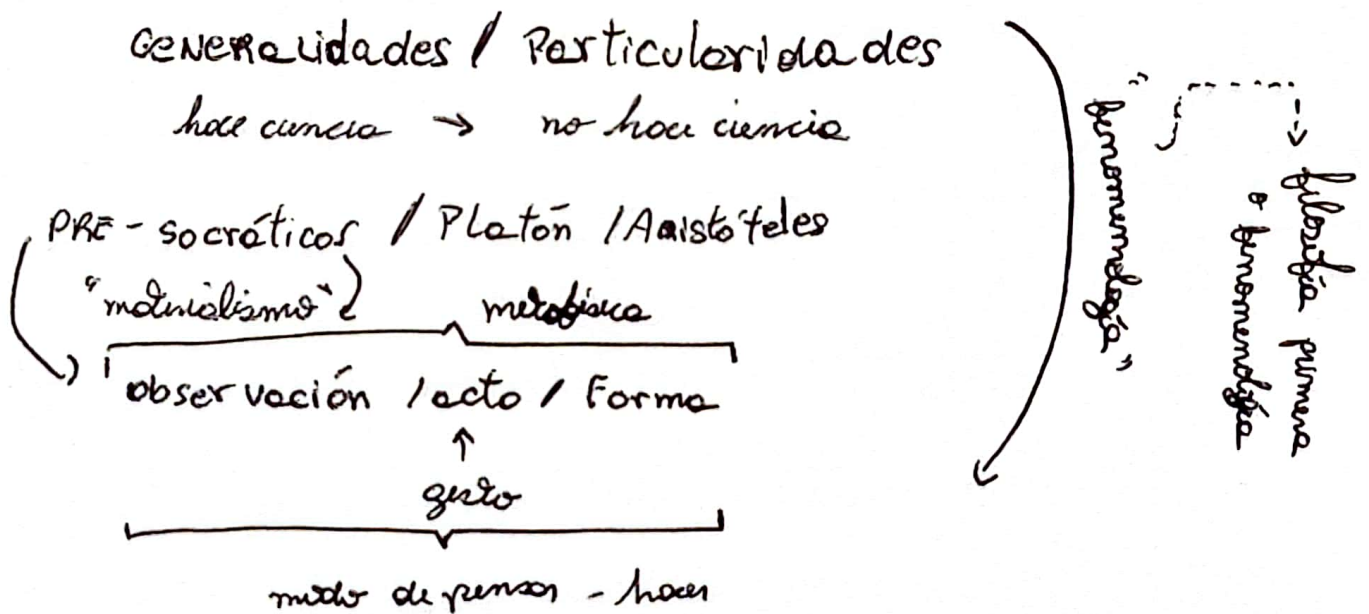 GENERALIDADES / Particularidades
hace ciencia → no hace ciencia
PRE-socráticos / Platón / Aristóteles
"materialismo" metafísica
observación / acto / Forma
↑
gesto
modo de pensar - hacer
"fenomenología"
filosofía primera
o fenomenología